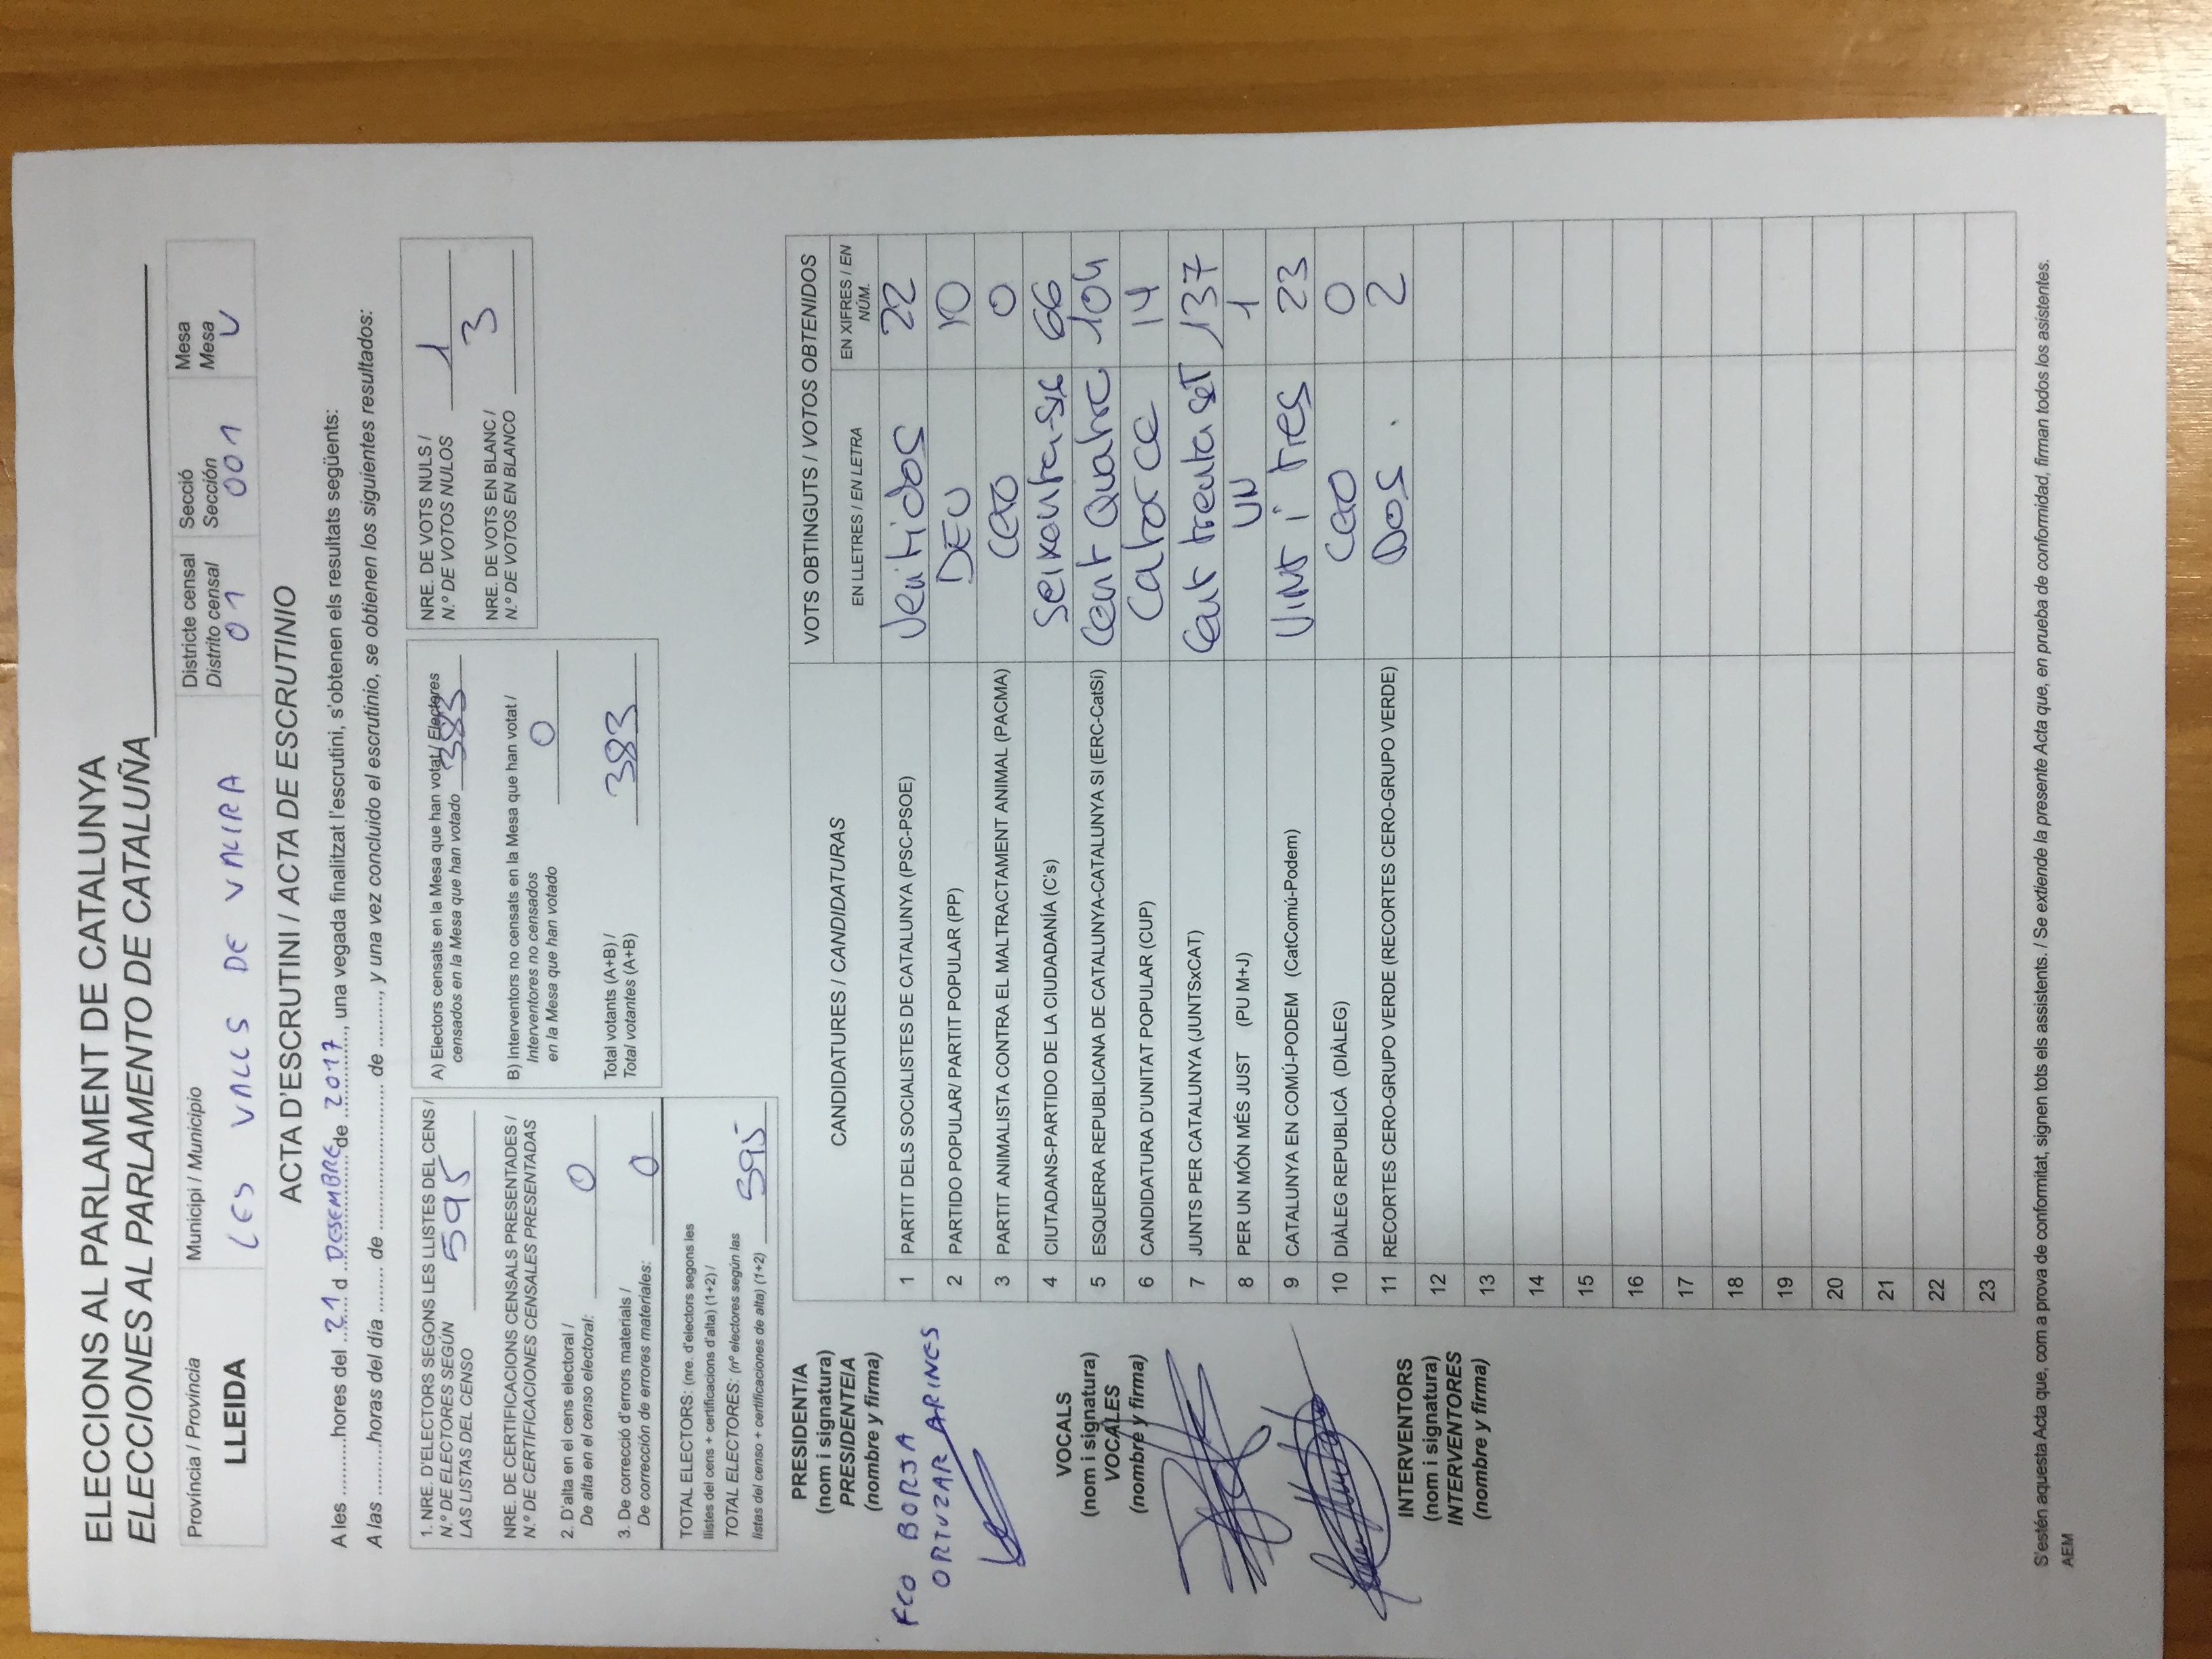 ELECCIONS AL PARLAMENT DE CATALUNYA
ELECCIONES AL PARLAMENTO DE CATALUÑA
Província / Provincia
LLEIDA
Municipi / Municipio
LES VALLS DE VALIRA
Districte censal
Distrito censal
01
Secció
Sección
001
Mesa
Mesa
U
ACTA D'ESCRUTINI / ACTA DE ESCRUTINIO
A les ............hores del ..21.. d ..DESEMBRE.. de ..2017.., una vegada finalitzat l'escrutini, s'obtenen els resultats següents:
A las ............horas del día ........ de ........................ de ........., y una vez concluido el escrutinio, se obtienen los siguientes resultados:
1. NRE. D'ELECTORS SEGONS LES LLISTES DEL CENS /
N.º DE ELECTORES SEGÚN
LAS LISTAS DEL CENSO
595
NRE. DE CERTIFICACIONS CENSALS PRESENTADES /
N.º DE CERTIFICACIONES CENSALES PRESENTADAS
2. D'alta en el cens electoral /
De alta en el censo electoral:
0
3. De correcció d'errors materials /
De corrección de errores materiales:
0
TOTAL ELECTORS: (nre. d'electors segons les
llistes del cens + certificacions d'alta) (1+2) /
TOTAL ELECTORES: (nº electores según las
listas del censo + certificaciones de alta) (1+2)
595
A) Electors censats en la Mesa que han votat / Electores
censados en la Mesa que han votado
383
B) Interventors no censats en la Mesa que han votat /
Interventores no censados
en la Mesa que han votado
0
Total votants (A+B) /
Total votantes (A+B)
383
NRE. DE VOTS NULS /
N.º DE VOTOS NULOS
1
NRE. DE VOTS EN BLANC /
N.º DE VOTOS EN BLANCO
3
CANDIDATURES / CANDIDATURAS
VOTS OBTINGUTS / VOTOS OBTENIDOS
EN LLETRES / EN LETRA
EN XIFRES / EN
NÚM.
1 PARTIT DELS SOCIALISTES DE CATALUNYA (PSC-PSOE) Ventidos 22
2 PARTIDO POPULAR/ PARTIT POPULAR (PP) DEU 10
3 PARTIT ANIMALISTA CONTRA EL MALTRACTAMENT ANIMAL (PACMA) CERO 0
4 CIUTADANS-PARTIDO DE LA CIUDADANÍA (C's) Seixanta-sis 66
5 ESQUERRA REPUBLICANA DE CATALUNYA-CATALUNYA SI (ERC-CatSí) Cent Quatre 104
6 CANDIDATURA D'UNITAT POPULAR (CUP) Catorce 14
7 JUNTS PER CATALUNYA (JUNTSxCAT) Cent trenta set 137
8 PER UN MÓN MÉS JUST (PU M+J) UN 1
9 CATALUNYA EN COMÚ-PODEM (CatComú-Podem) Vint i tres 23
10 DIÀLEG REPUBLICÀ (DIÀLEG) CERO 0
11 RECORTES CERO-GRUPO VERDE (RECORTES CERO-GRUPO VERDE) Dos. 2
12
13
14
15
16
17
18
19
20
21
22
23
PRESIDENT/A
(nom i signatura)
PRESIDENTE/A
(nombre y firma)
FCO BORJA
ORTUZAR ARINES
VOCALS
(nom i signatura)
VOCALES
(nombre y firma)
INTERVENTORS
(nom i signatura)
INTERVENTORES
(nombre y firma)
S'estén aquesta Acta que, com a prova de conformitat, signen tots els assistents. / Se extiende la presente Acta que, en prueba de conformidad, firman todos los asistentes.
AEM